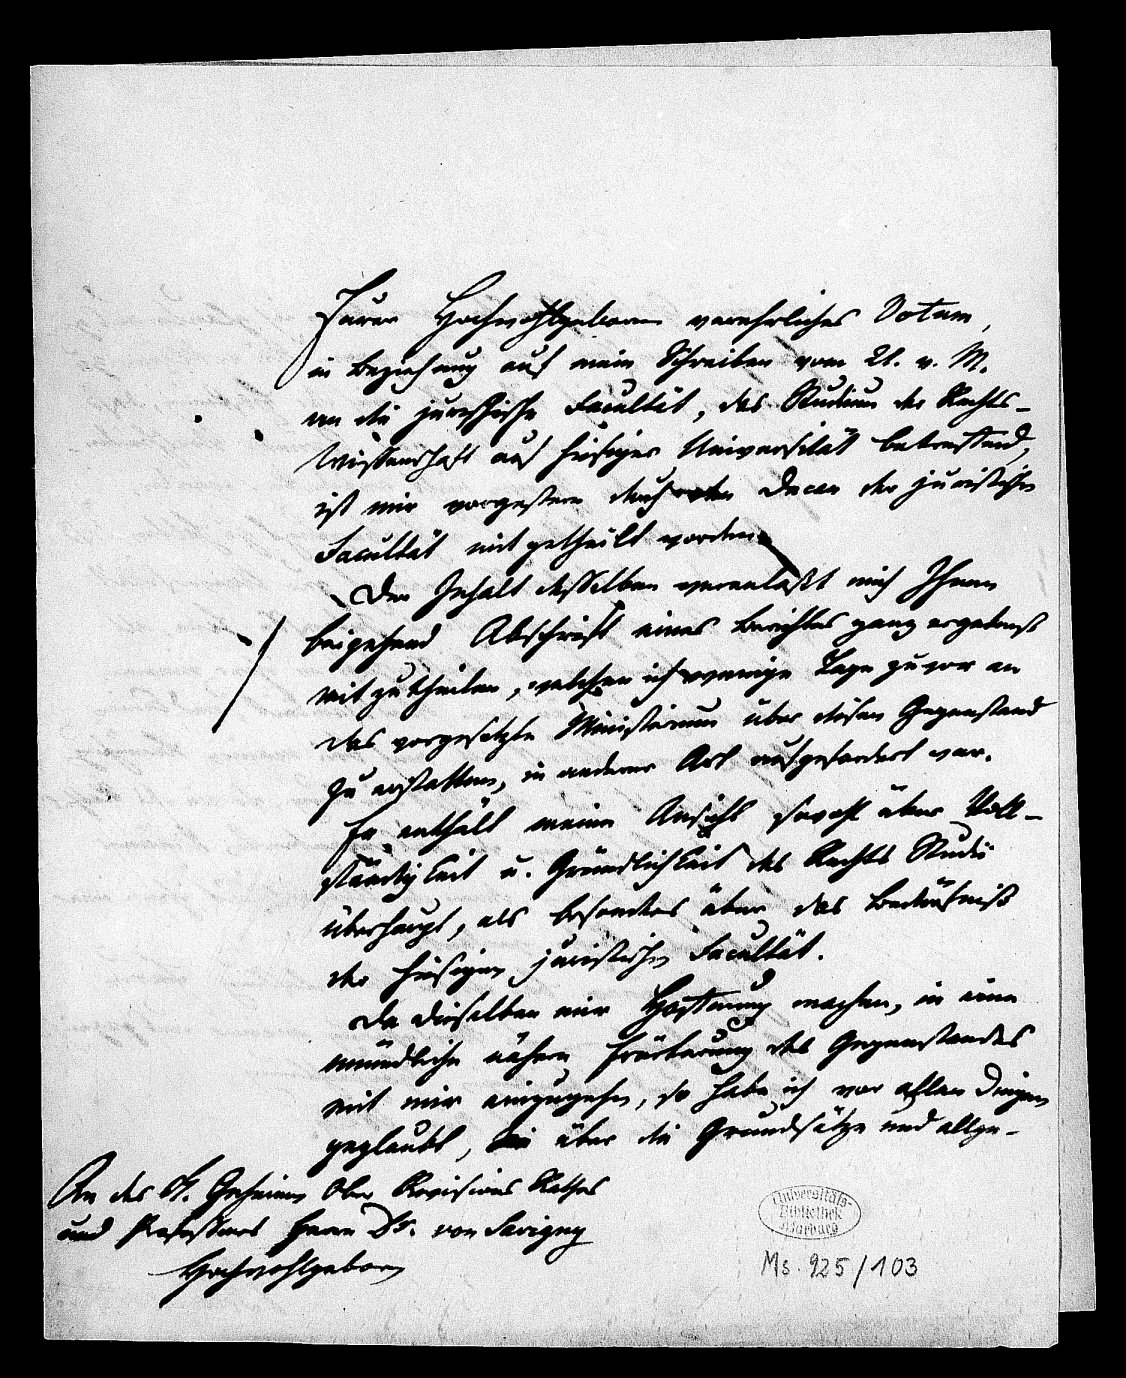 Euerer Hochwohlgeboren verehrliches Votum,
in Beziehung auf mein Schreiben vom 21. v. M.
an die juristische Facultät, das Studium der Rechts-
Wissenschaft auf hiesiger Universität betreffend,
ist mir vorgestern durch den Decan der juristischen
Facultät mitgetheilt worden.
Der Inhalt desselben veranlaßt mich Ihnen
beigehend Abschrift eines Berichtes ganz ergebenst
mitzutheilen, welchen ich wenige Tage zuvor an
das vorgesetzte Ministerium über diesen Gegenstand
zu erstatten, in anderer Art aufgefordert war.
Er enthält meine Ansicht sowohl über Voll-
ständigkeit u. Gründlichkeit des Rechts Studii
überhaupt, als besonders über das Bedürfniß
der hiesigen juristischen Facultät.
Da dieselben mir Hoffnung machen, in eine
mündliche nähere Erörterung des Gegenstandes
mit mir einzugehen, so habe ich vor allen Dingen
geglaubt, über die Grundsätze und allge-
An des K. Geheimen Ober Revisions Rathes
und Professors Herrn Dr. von Savigny
Hochwohlgeboren
Universitäts-
Bibliothek
Marburg
Ms. 925/103